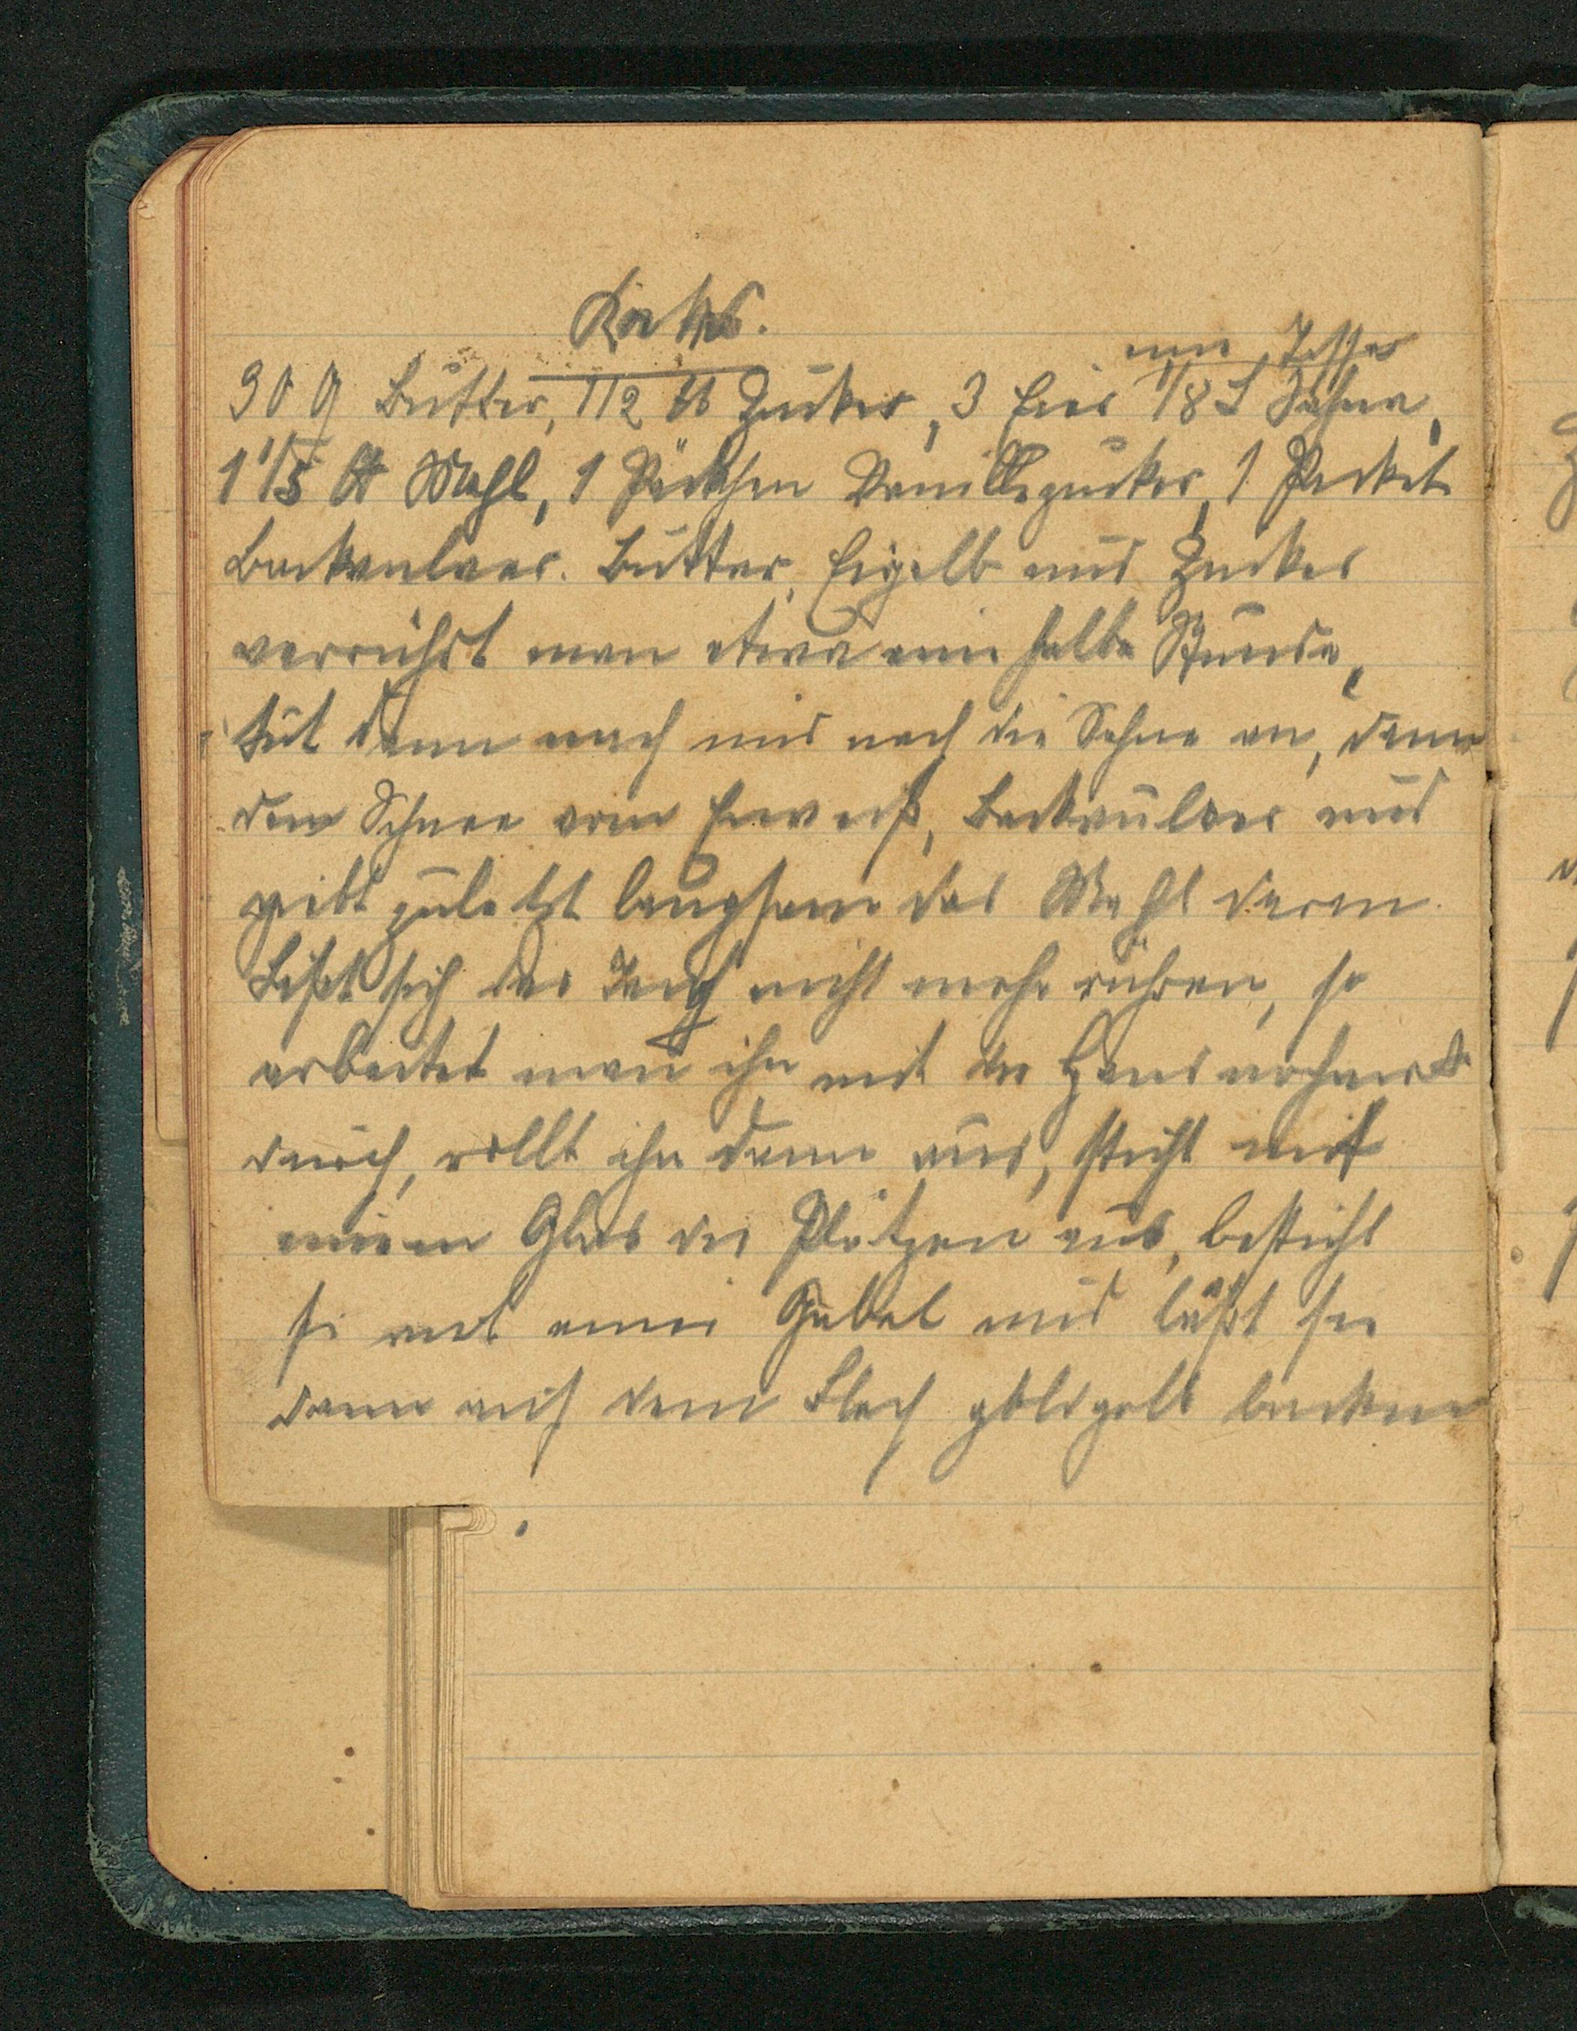 Kakes.
eine Tasse
90 g Butter, 1/2 ℔ Zucker, 3 Eier 1/8 L Sahne,
1 1/5 ℔ Mehl, 1 Päckchen Vanillezucker, 1 Packet
Backpulver. Butter, Eigelb und Zucker
verrührt man etwa eine halbe Stunde,
tut dann nach und nach die Sahne an, dann
den Schnee vom Eiweiß, Backpulver und
gibt zuletzt langsam das Mehl daran.
Läßt sich der Teig nicht mehr rühren, so
arbeitet man ihn mit der Hand
durch, rollt ihn dann aus, sticht mit
einem Glas die Plätzen aus, besticht
sie mit einer Gabel und läßt sie
dann auf dem Blech goldgelb backen